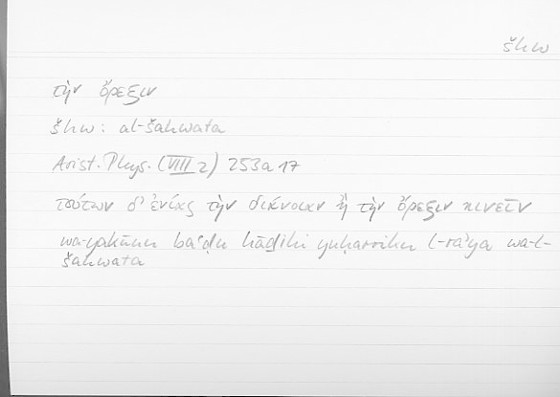 šhw
τὴν ὄρεξιν
šhw: al-šahwata
Arist. Phys. (VIII 2) 253a17
τούτων δ' ἐνίας τὴν διάνοιαν ἢ τὴν ὄρεξιν κινεῖν
wa-yakūnu baʿḍu hāḏihi yuḥarriku l-raʾya wa-l-
šahwata